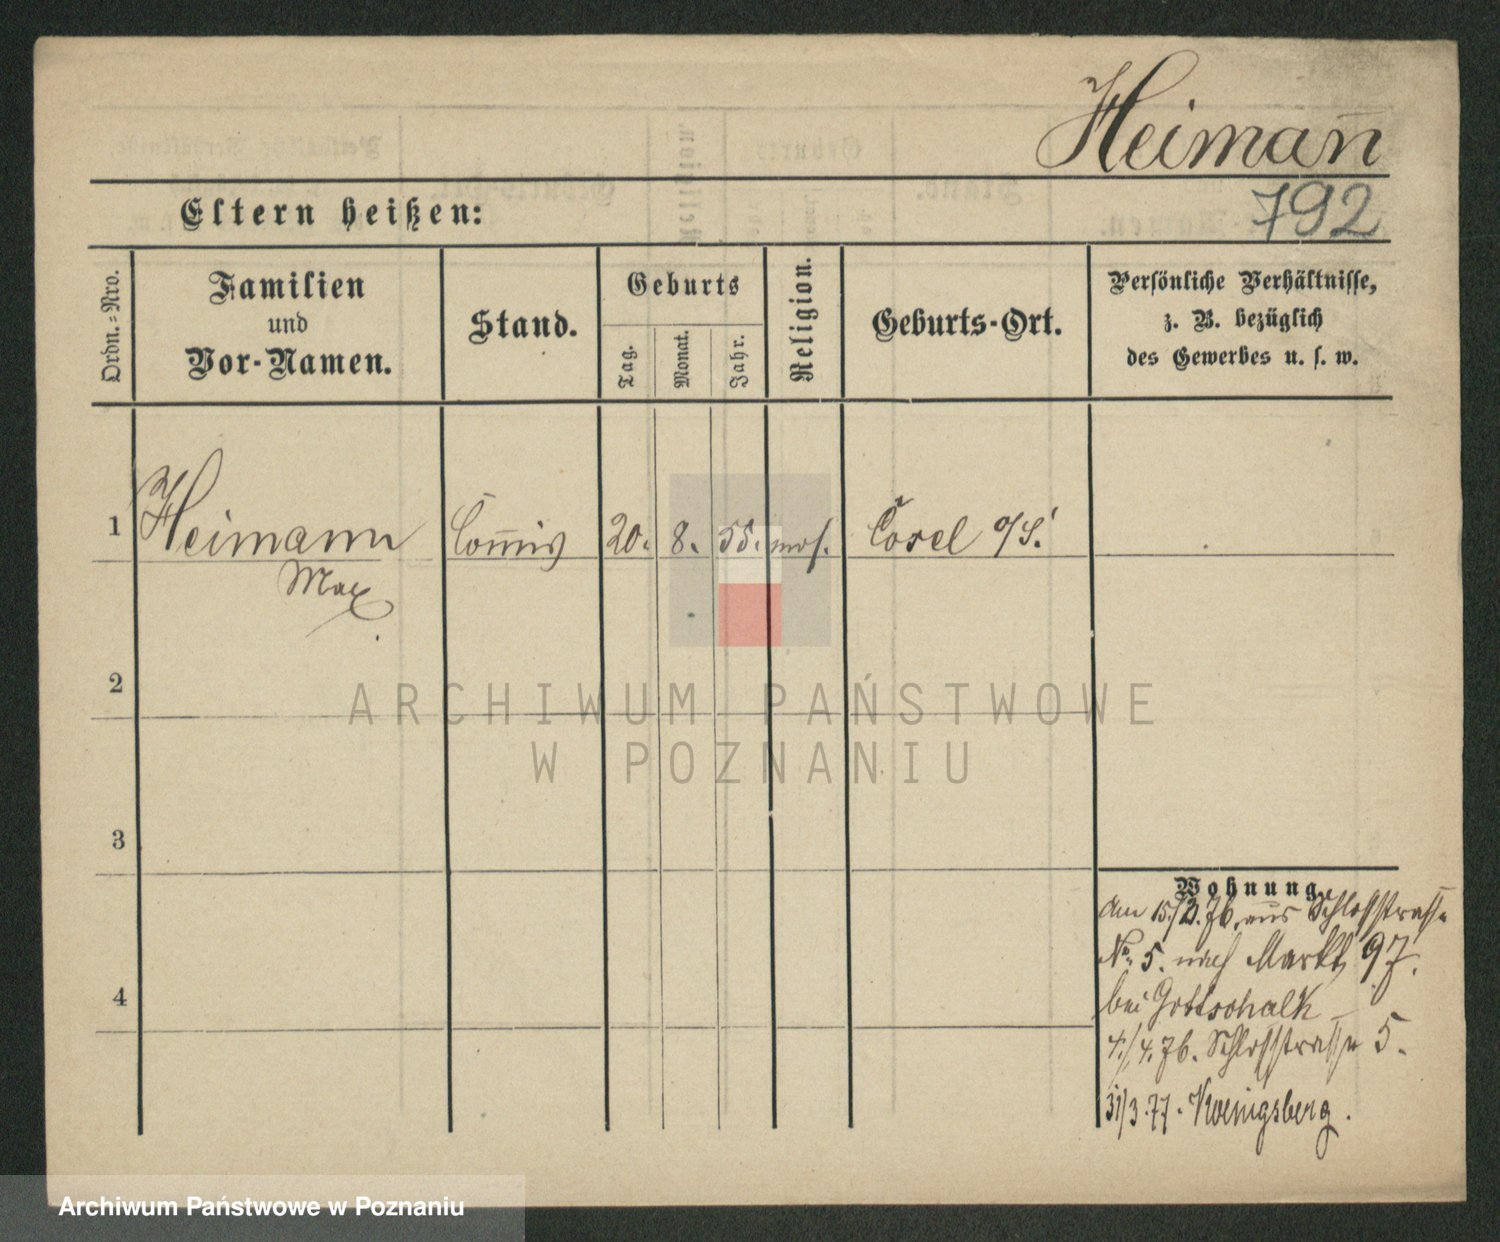 Heiman̄
792
Eltern heißen:
Ordn.=Nro.
Familien
und
Vor-Namen.
Stand.
Geburts
Tag.
Monat.
Jahr.
Religion.
Geburts-Ort.
Persönliche Verhältnisse,
z. B. bezüglich
des Gewerbes u. s. w.
1
Heimann
Max
Com̄is
20.
8.
55.
mos.
Cosel o/S.
2
3
4
Wohnung
am 15./2.76. aus Schloßstrasse
No. 5. nach Markt 97.
bei Gottschalk
4./4.76. Schloßstrasse 5.
31/3.77. Koenigsberg.
ARCHIWUM PAŃSTWOWE
W POZNANIU
Archiwum Państwowe w Poznaniu